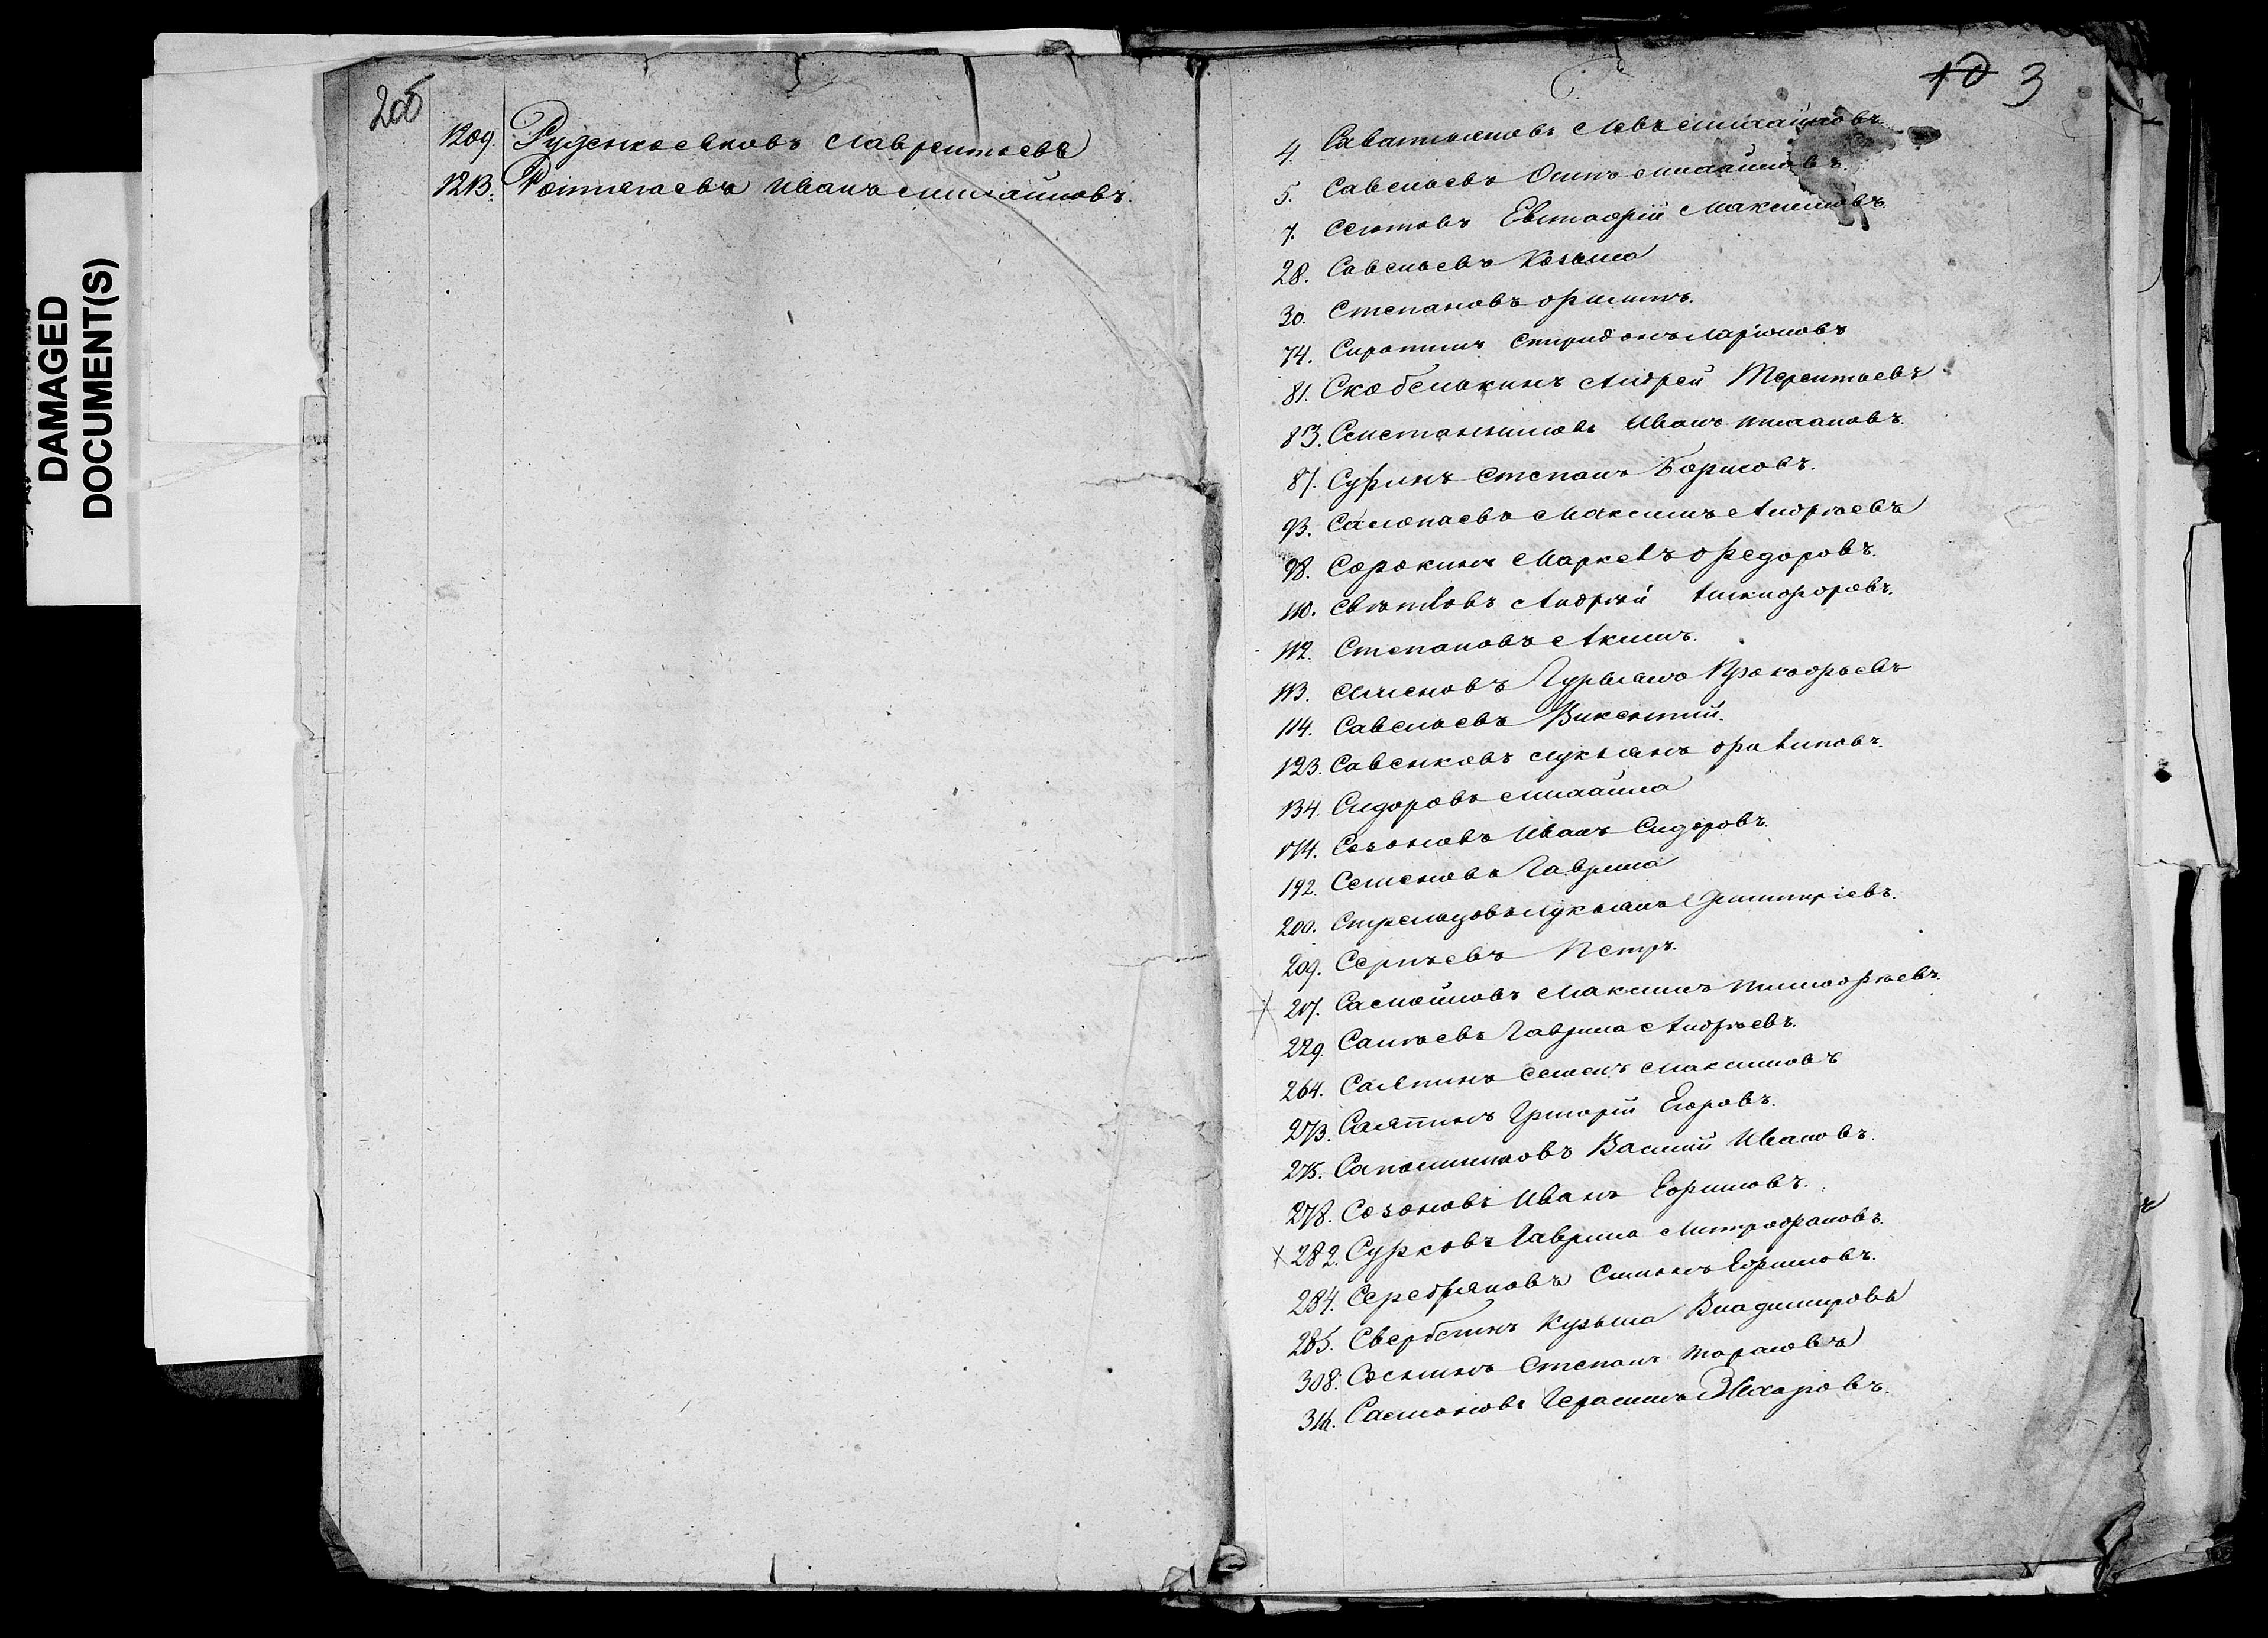 DAMAGED
DOCUMENT(S)
2об
1209. Руденко Яковъ Лаврентьевъ
1213. Иванъ Михайловъ.
С.
10 3
4. Левъ Михайловъ
5. Савельевъ Осипъ Михайловъ.
7. Евстафій Максимовъ
28. Савельевъ Козьма
30. Степановъ Филипъ.
74. Сиротинъ Спиридонъ Ларіоновъ
81. Скобелькинъ Андрей Терентьевъ
83. Иванъ Тихановъ.
87. Суринъ Степанъ Борисовъ.
93. Максимъ Андреевъ
98. Сорокинъ Маркелъ Федоровъ.
110. Андрей Никифоровъ.
112. Степановъ Акимъ.
113. Гурьянъ Прокофьевъ
114. Савельевъ Викентій.
123. Савенковъ Лукьянъ
134. Сидоровъ Михайла
174. Созоновъ Иванъ Сидоровъ.
192. Семеновъ Гаврила
200. Стрельцовъ Лукьянъ Дмитріевъ.
209. Сергѣевъ Петръ.
217. Самойловъ Максимъ Тимофѣевъ.
229. Гаврила Андреевъ.
264. Саяпинъ Семенъ Максимовъ
273. Саяпинъ Григорій Егоровъ.
275. Сапожниковъ Василій Ивановъ.
278. Созоновъ Иванъ Ефимовъ.
282. Сурковъ Гаврила Митрофановъ.
284. Серебряковъ Ефимовъ.
285. Свербтинъ Кузьма Владимировъ
308. Соснинъ Степанъ Тарасовъ
316. Герасимъ Захаровъ.